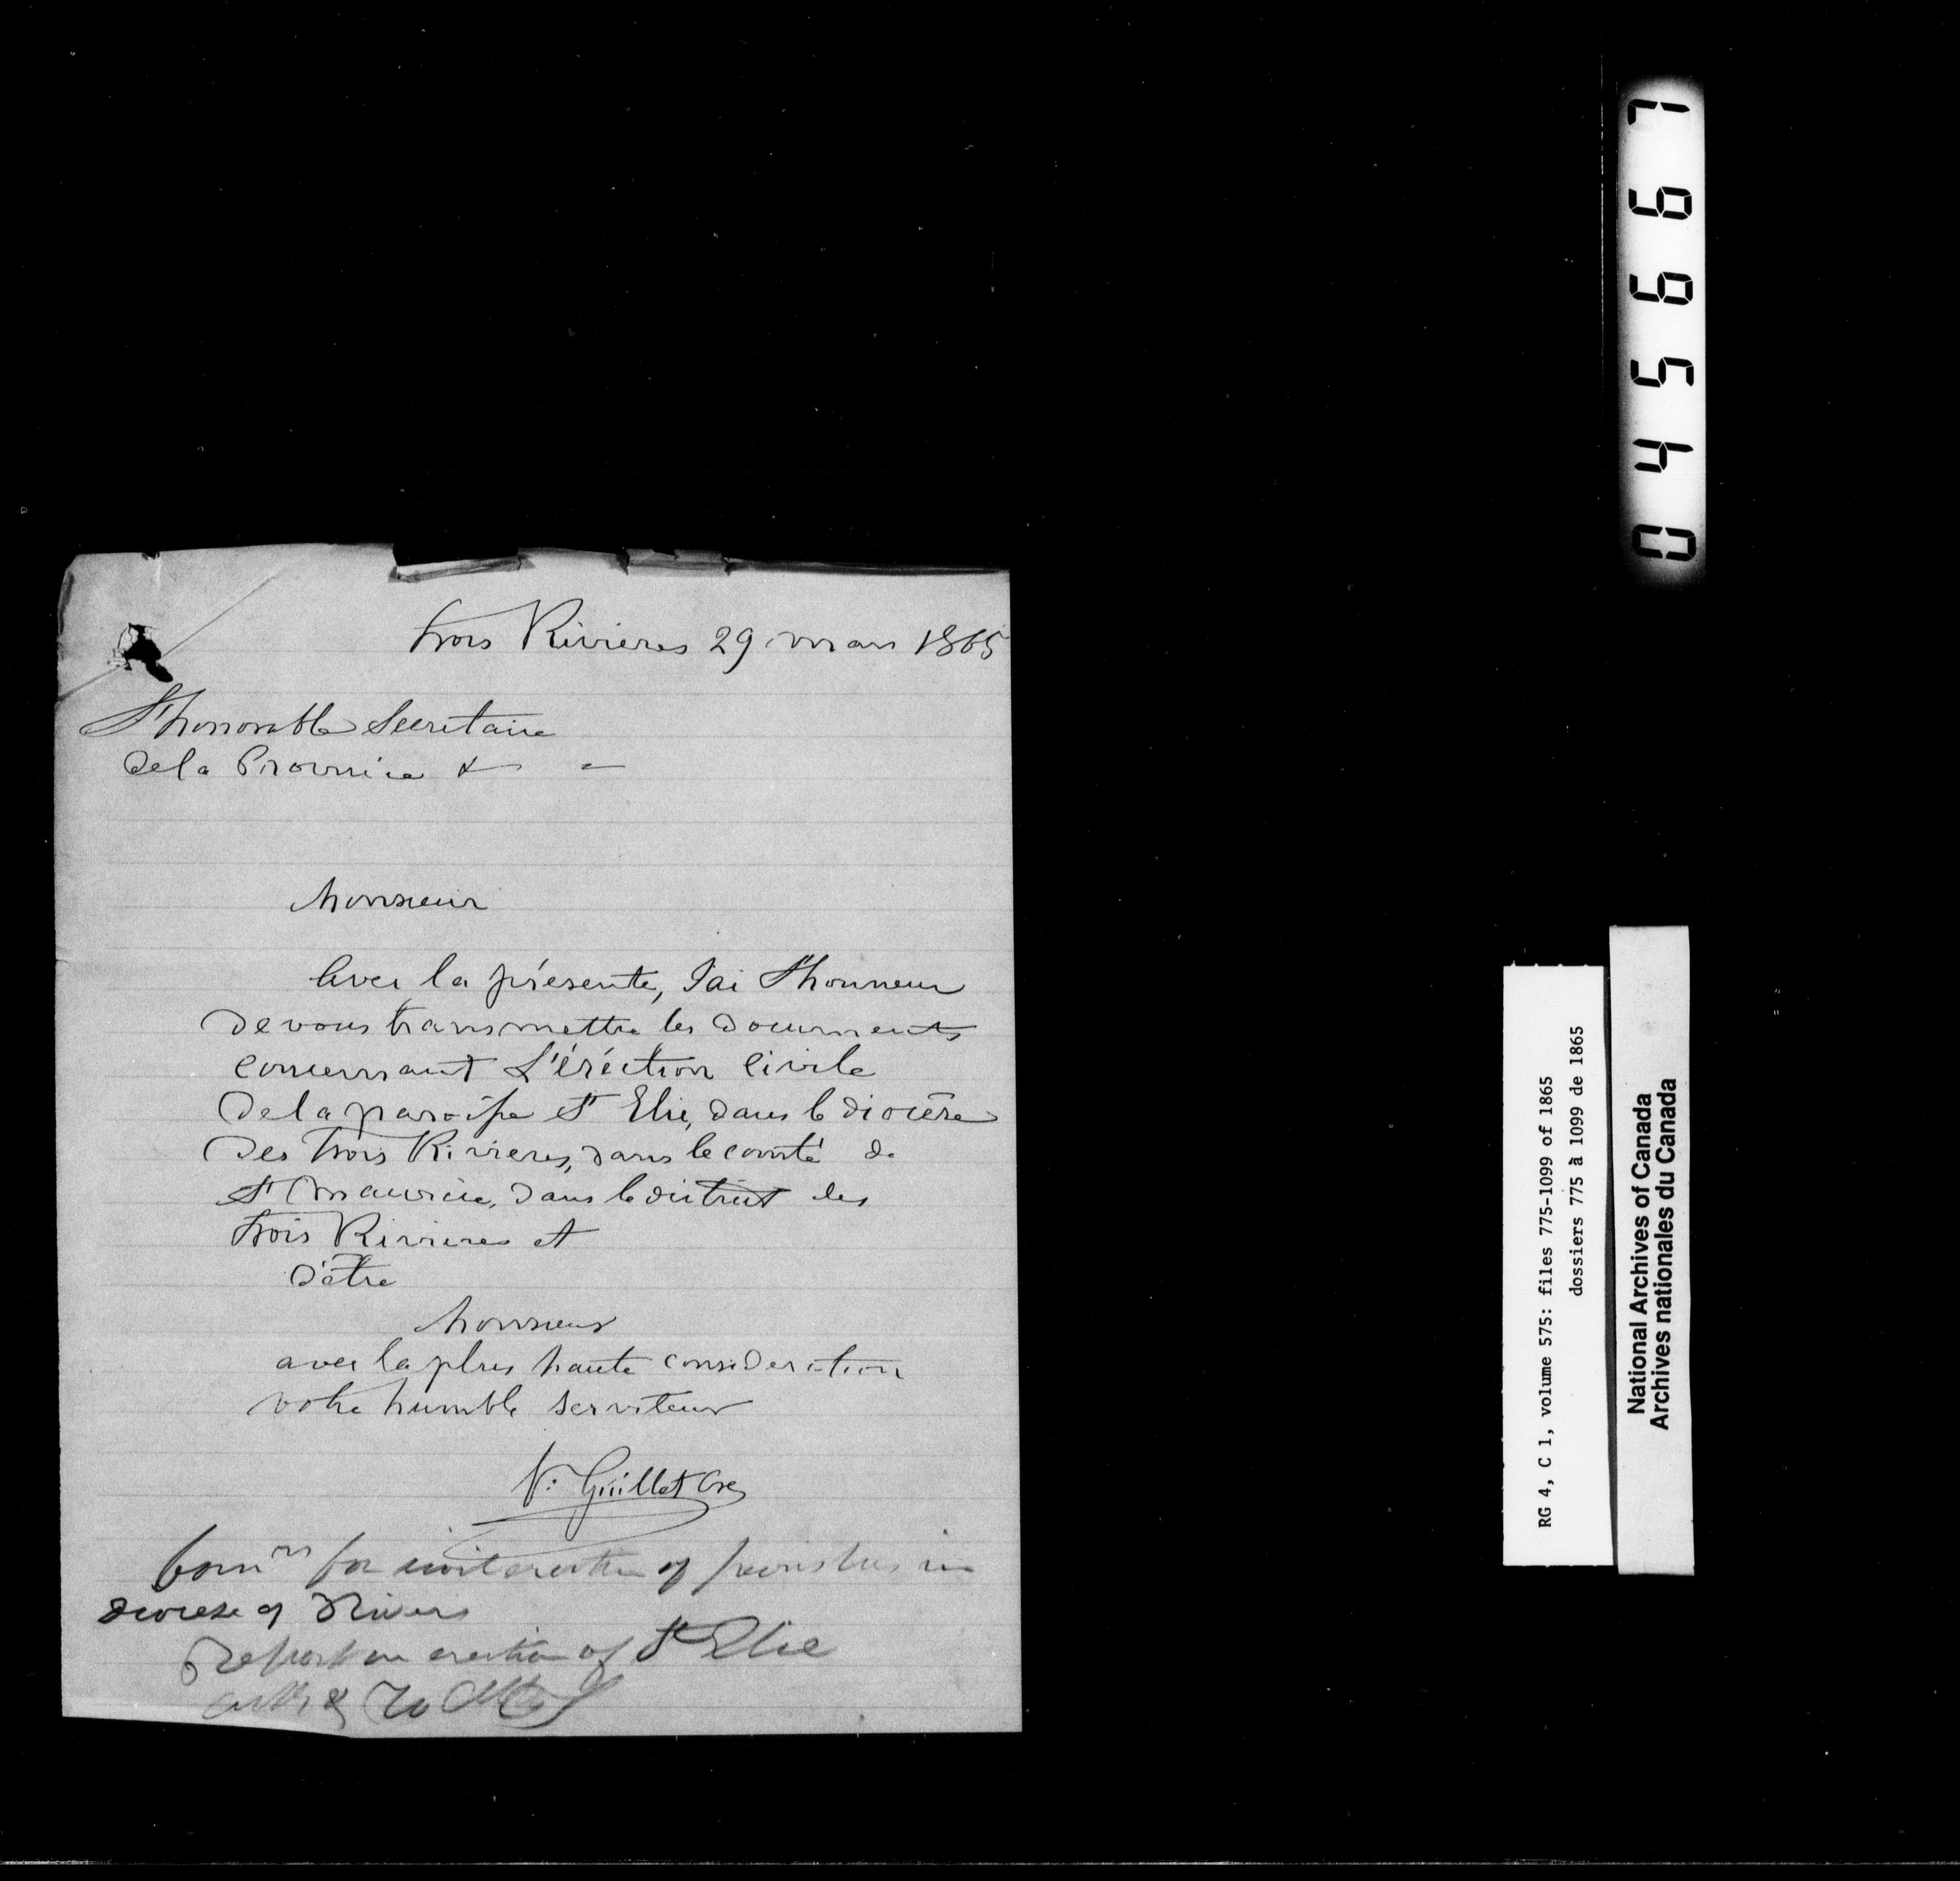 trois Rivières 29 mars 1865
L'honorable Secretaire
De la Province &
Monsieur
Avec la présente, J'ai L'honneur
De vous transmettre les Documents
concernant L'éréction Civile
De la paroisse St Elie, dans le diocèse
Des trois Rivieres, dans le comté de
St Maurice, Dans le district des
trois Rivieres et
D'être
Monsieur
avec la plus haute consideration
votre humble serviteur
V. Guillet Cre
Comrs for civil erection of parishes in
diocese of 3 Rivers
Report on erection of St Elie
0 4 5 6 6 7
RG 4, C 1, volume 575: files 775-1099 of 1865
dossiers 775 à 1099 de 1865
National Archives of Canada
Archives nationales du Canada